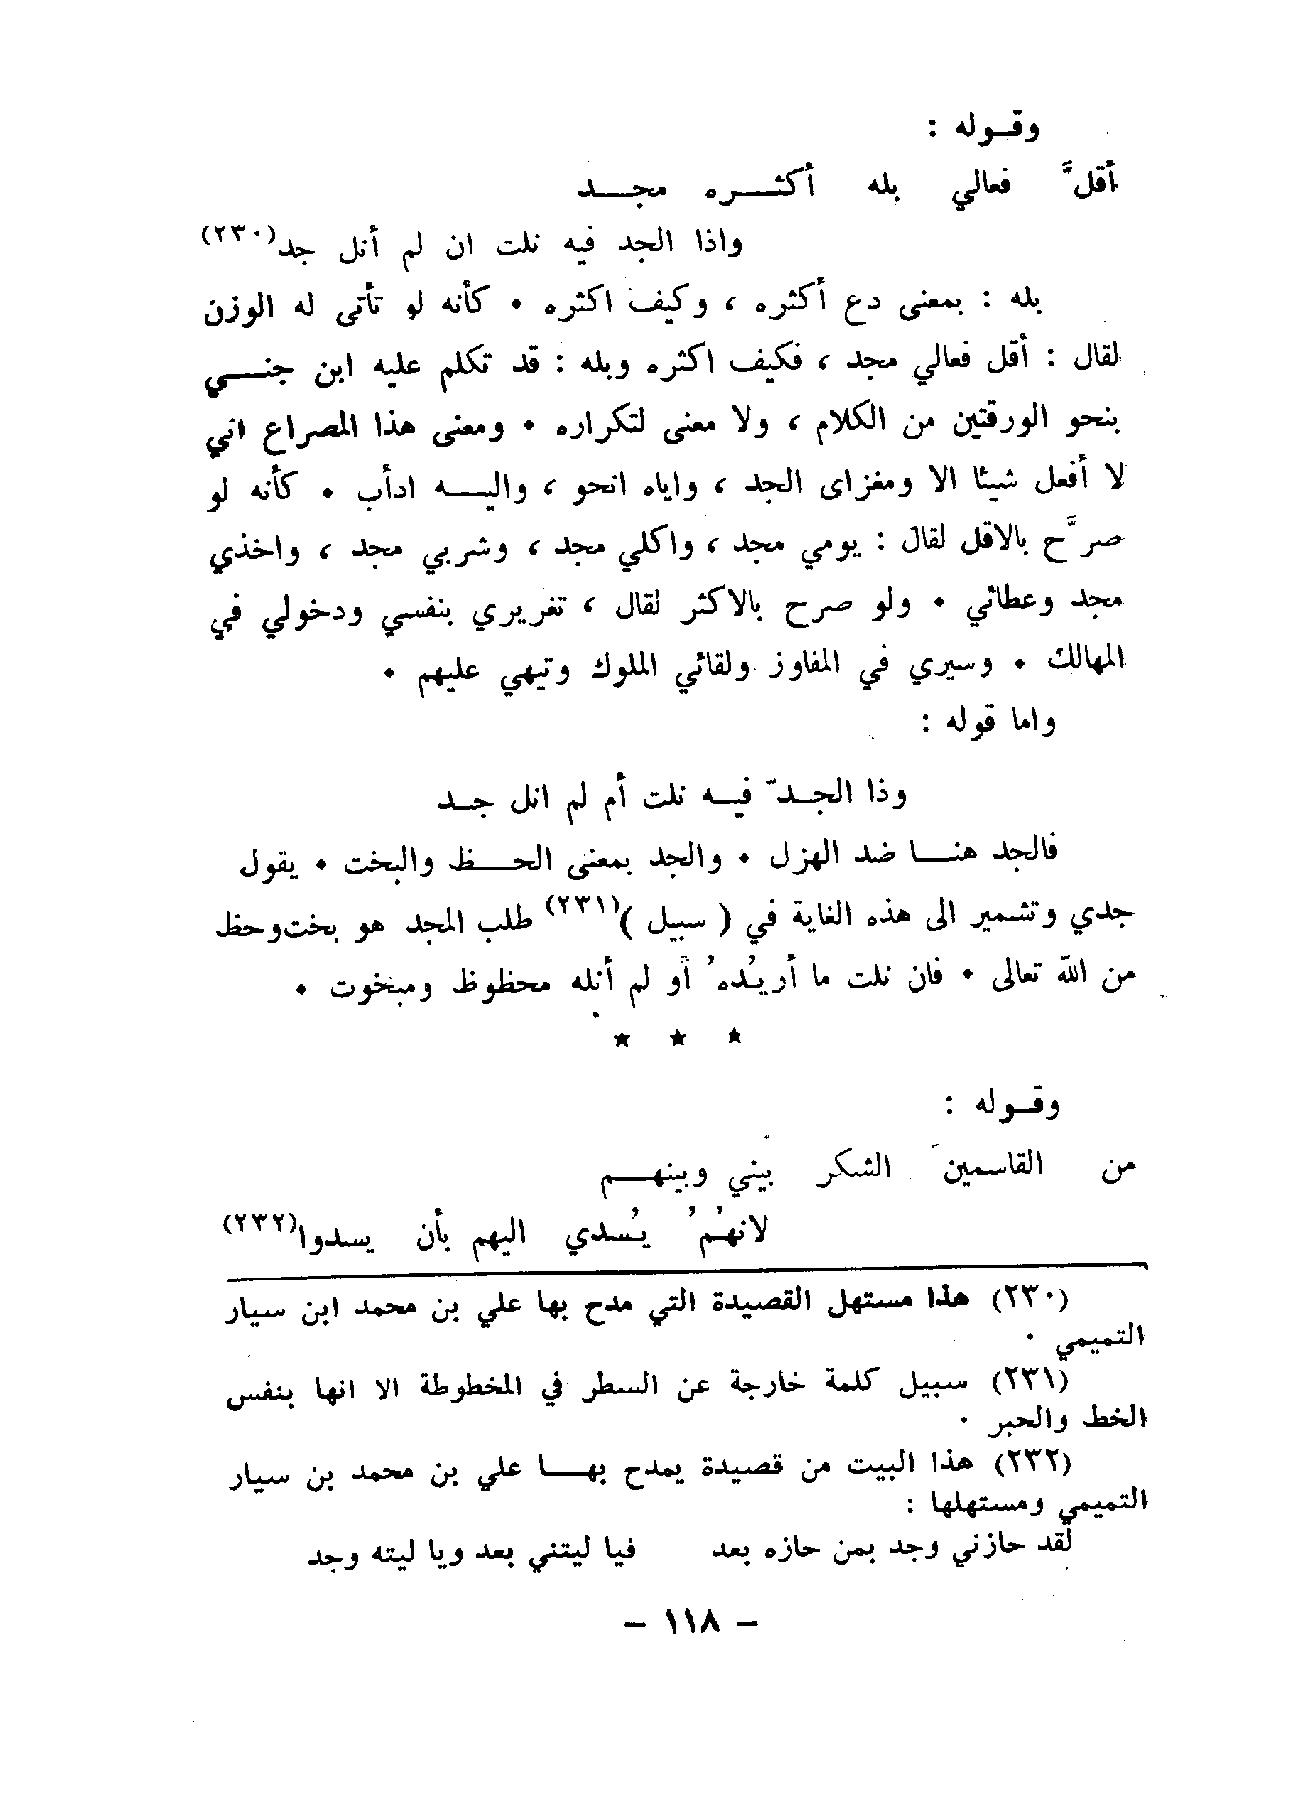 وقـوله :
أقلَّ فعالي بله أكثـــره مجـــد
واذا الجد فيه نلت ان لم أنل جد(٢٣٠)
بله : بمعنى دع أكثره ، وكيف اكثره • كأنه لو تأتى له الوزن
لقال : أقل فعالي مجد ، فكيف اكثره وبله : قد تكلم عليه ابن جنـــي
بنحو الورقتين من الكلام ، ولا معنى لتكراره • ومعنى هذا المصراع اني
لا أفعل شيئا الا ومغزاى الجد ، واياه انحو ، واليـــه ادأب • كأنه لو
صرَّح بالاقل لقال : يومي مجد ، واكلي مجد ، وشربي مجد ، واخذي
مجد وعطائي • ولو صرح بالاكثر لقال ، تغريري بنفسي ودخولي في
المهالك • وسيري في المفاوز ولقائي الملوك وتيهي عليهم •
واما قوله :
وذا الجـدّ فيـه نلت أم لم انل جـد
فالجد هنـــا ضد الهزل • والجد بمعنى الحـــظ والبخت • يقول
جدي وتشمير الى هذه الغاية في ( سبيل )(٢٣١) طلب المجد هو بخت وحظ
من الله تعالى • فان نلت ما أريُدهُ أو لم أنله محظوظ ومبخوت •
★ ★ ★
وقـوله :
من القاسمين الشكر بيني وبينهـــم
لانهُمُ يُسدي اليهم بأن يسدوا(٢٣٢)
(٢٣٠) هذا مستهل القصيدة التي مدح بها علي بن محمد ابن سيار
التميمي •
(٢٣١) سبيل كلمة خارجة عن السطر في المخطوطة الا انها بنفس
الخط والحبر •
(٢٣٢) هذا البيت من قصيدة يمدح بهـــا علي بن محمد بن سيار
التميمي ومستهلها :
لقد حازني وجد بمن حازه بعد فيا ليتني بعد ويا ليته وجد
– ١١٨ –